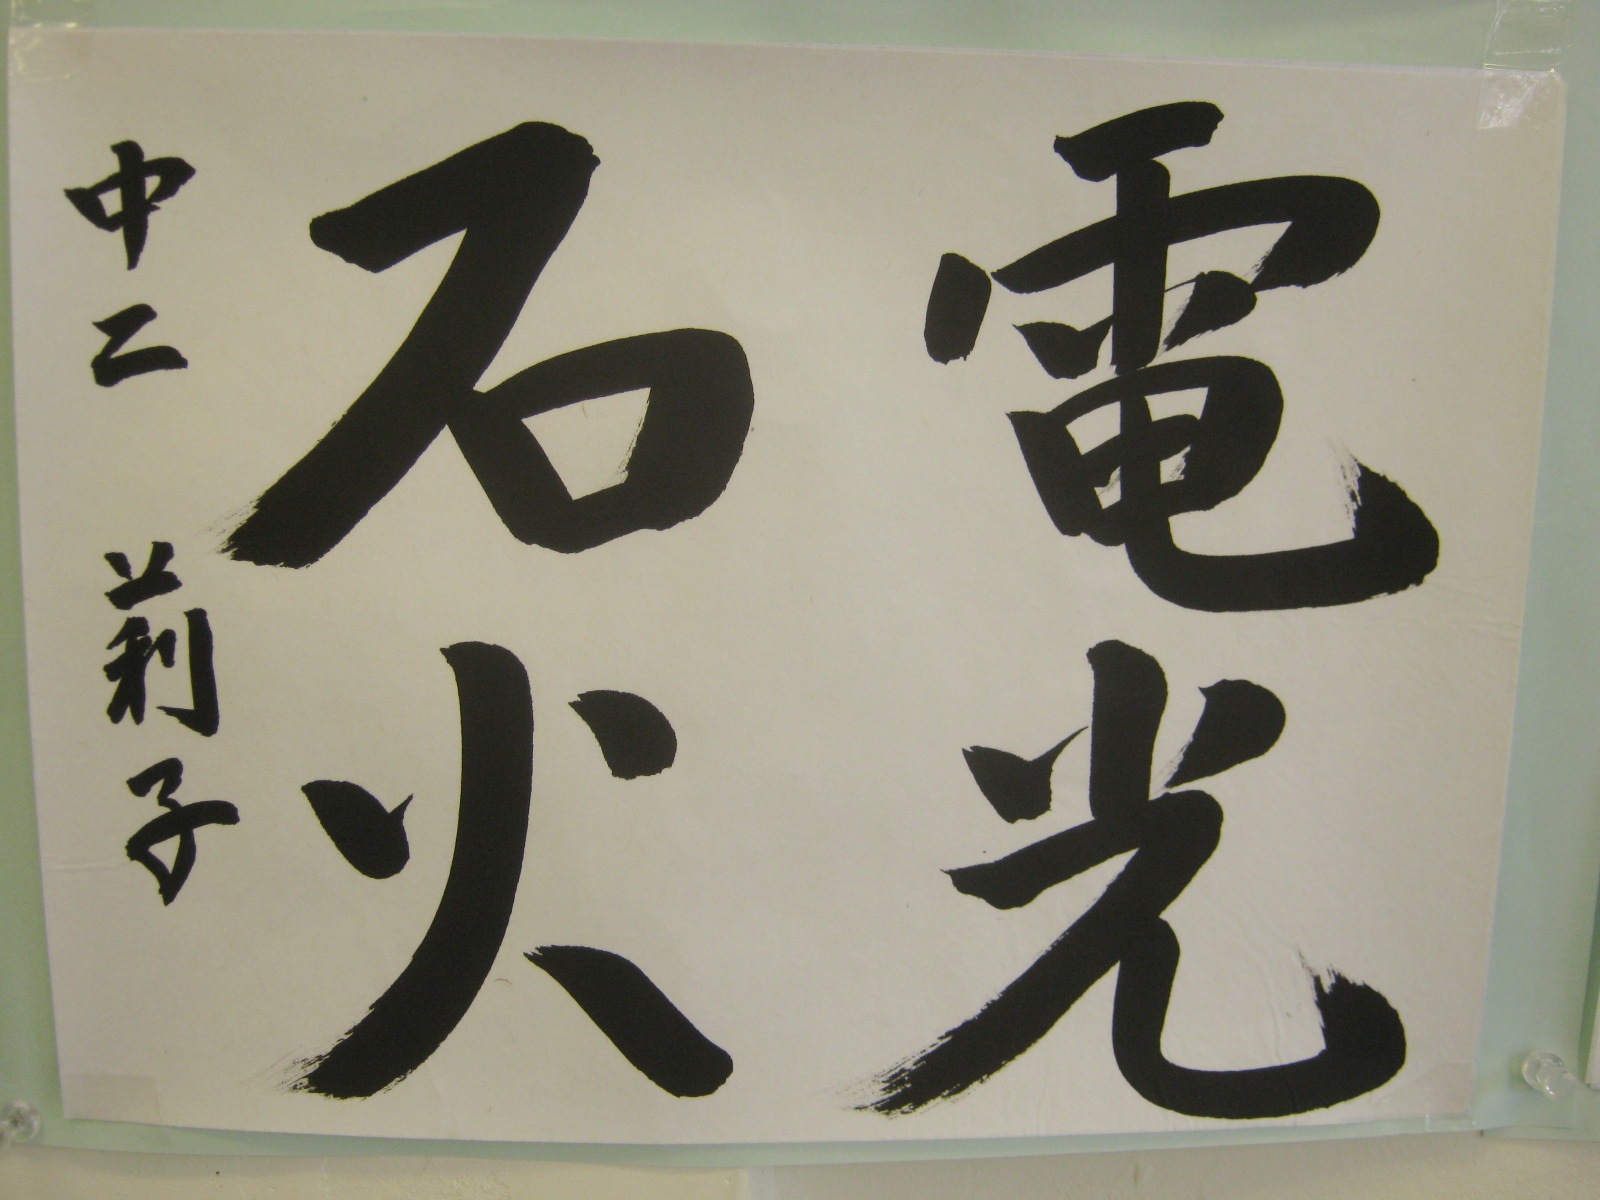 電光
石火
中二 莉子